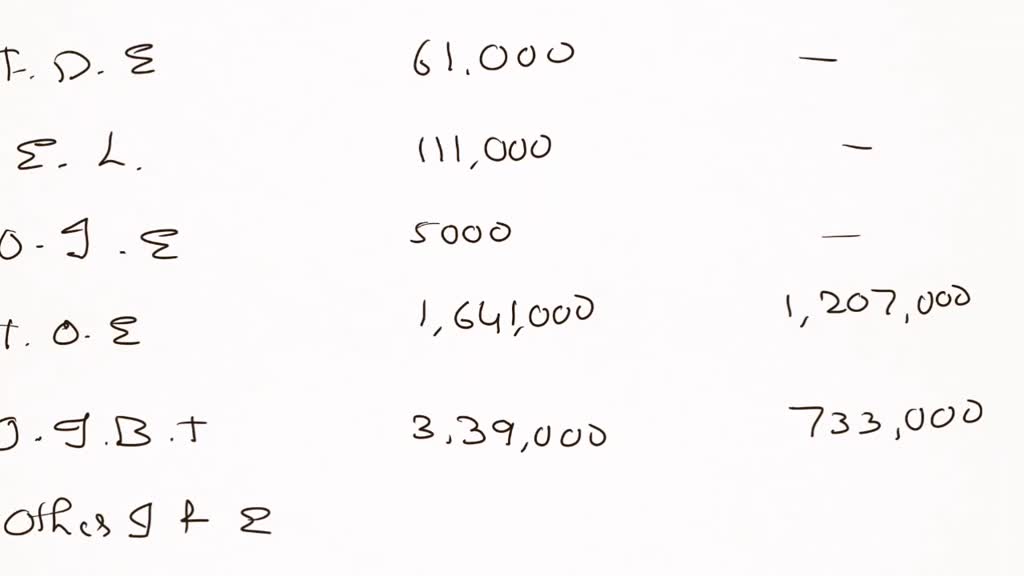 T. D. E 61.000 —
E. L. 111,000 —
O. I. E 5000 —
T. O. E 1,641,000 1,207,000
O. I. B. T 3,39,000 733,000
Other I & E